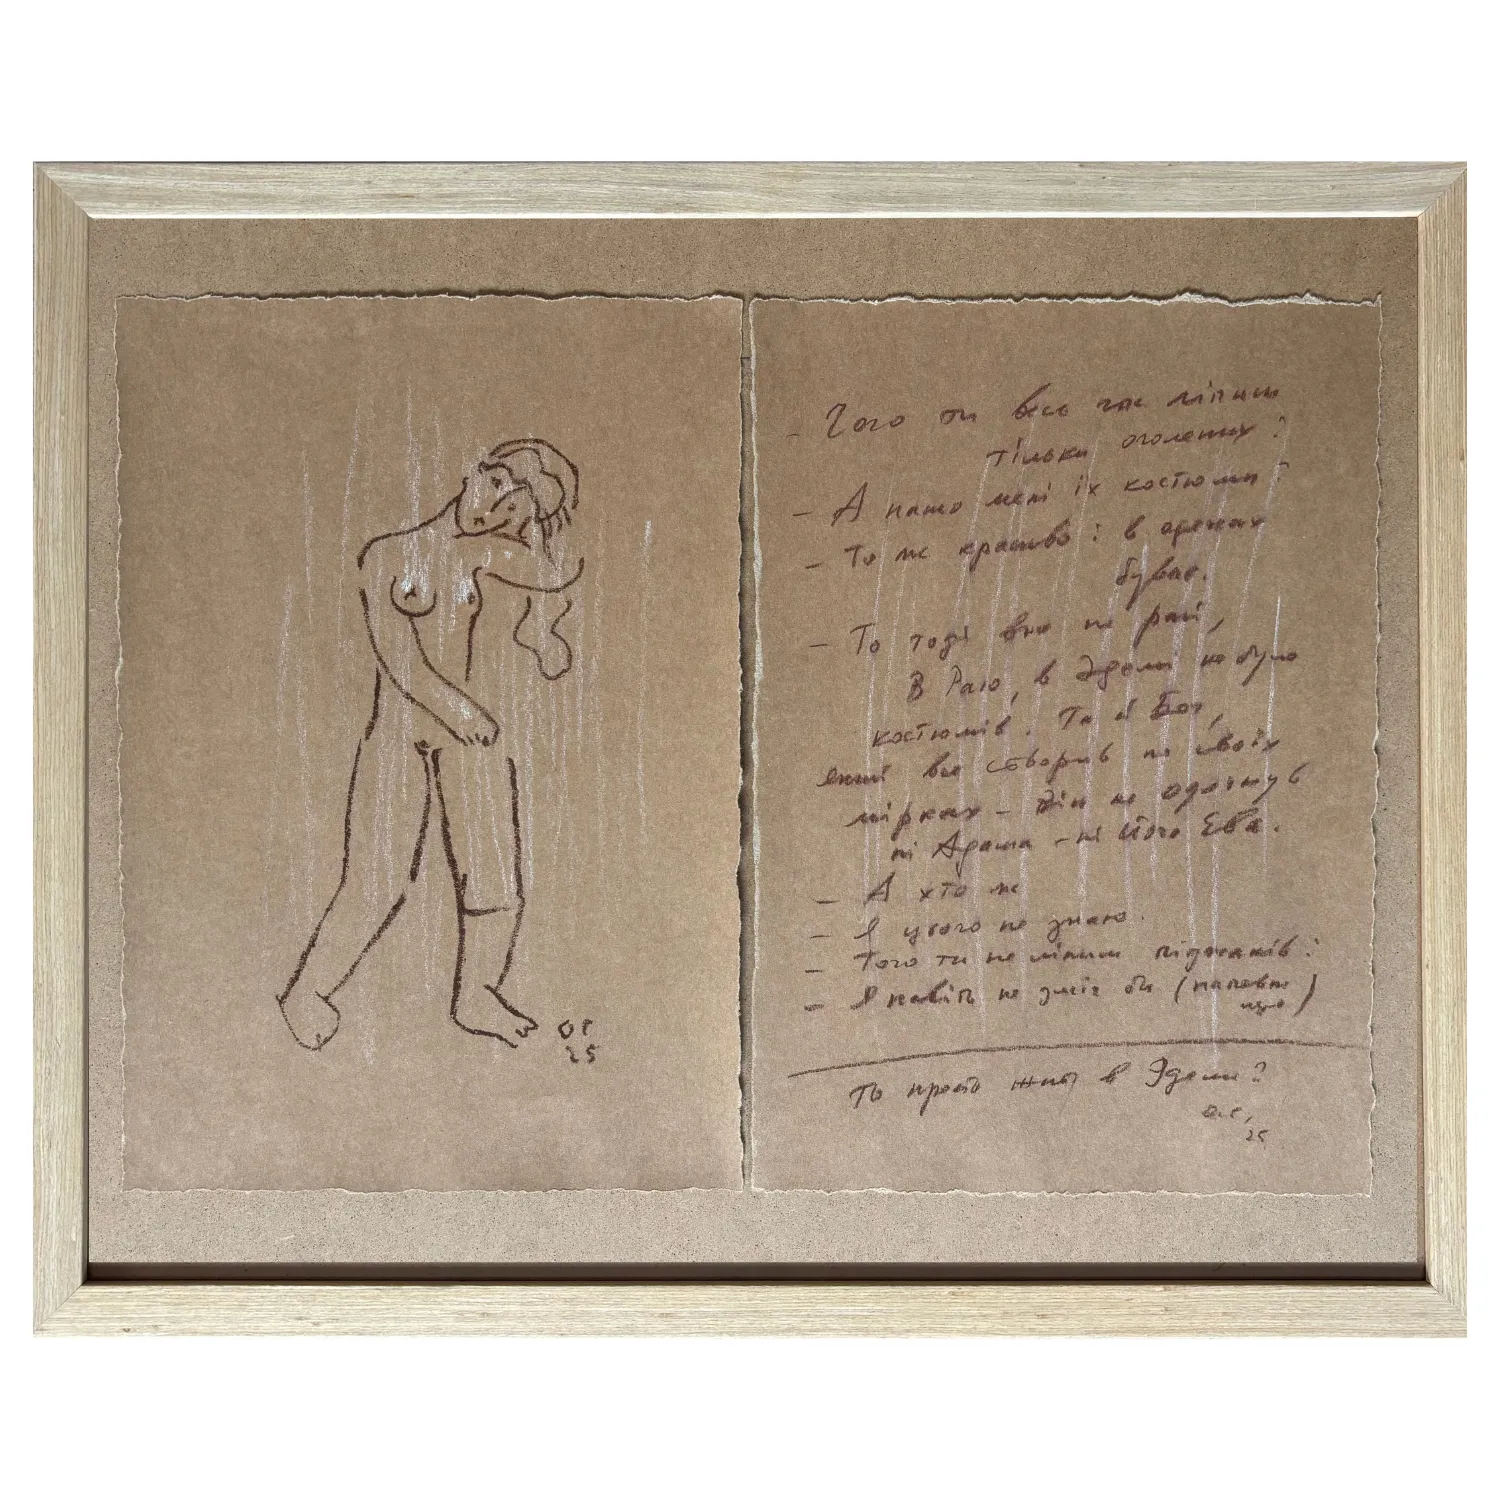 ОР
25
- Чого ти весь час ліпиш
тільки оголених?
- А нащо мені їх костюми?
- То ж красиво і в
буває.
- То тоді вже не рай,
В Раю, в Эдемі не було
костюмів. Та й Бог,
який все створив по своїх
мірках - Він не одягнув
ні Адама - ні його Єва.
- А хто ж
- Я цього не знаю.
- Того ти не ліпиш піджаків?
- Я навіть не зміг би (напевне
що)
Ти просто живеш в Эдемі?
О.Р,
25